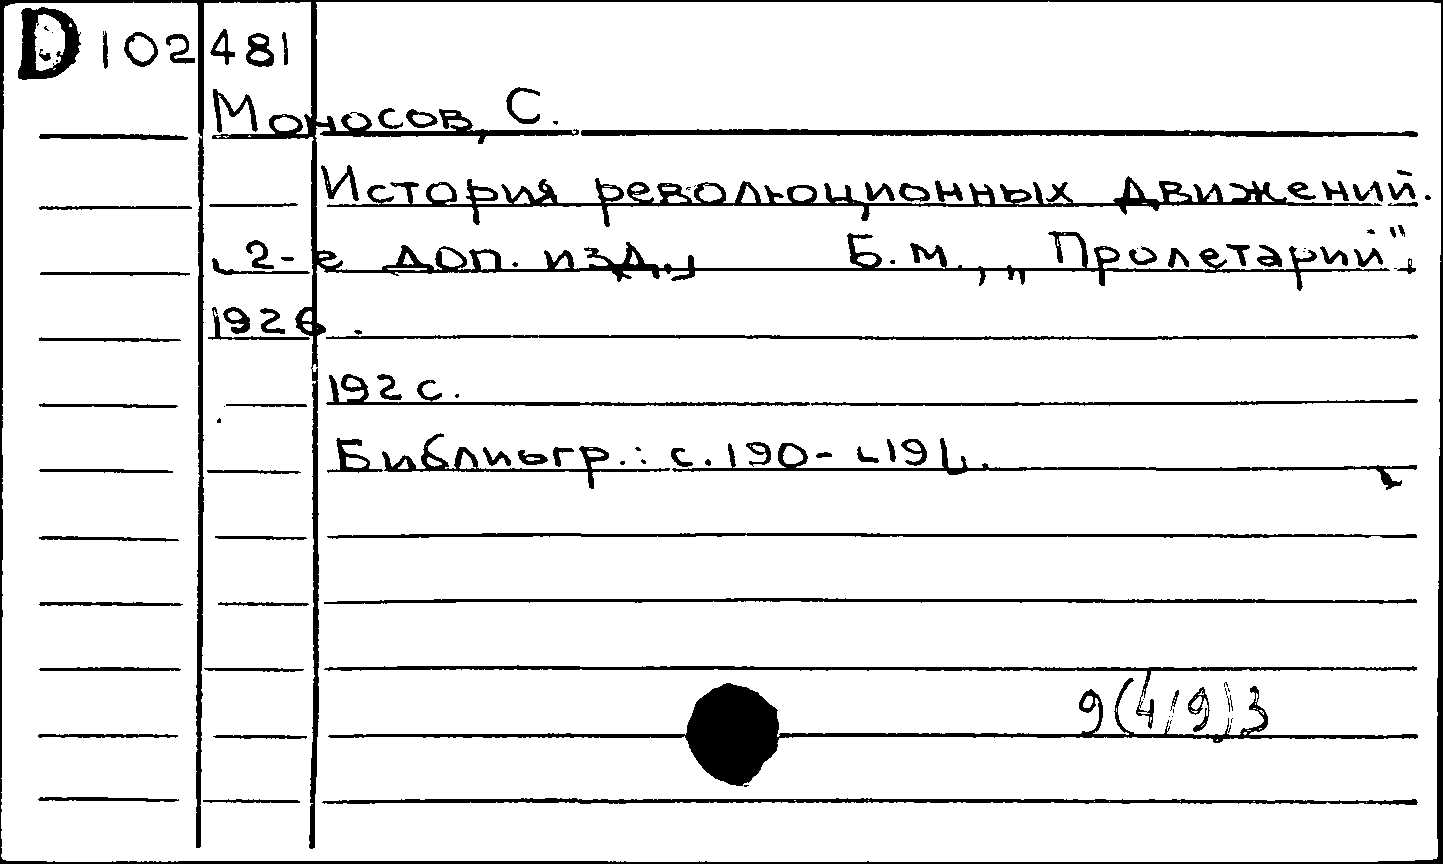 D 102 481
Моносов, С.
История революционных движений.
[2-е доп. изд.] Б.м., „Пролетарий",
1926.
192 с.
Библиогр.: с. 190-[191].
9(4/9)3